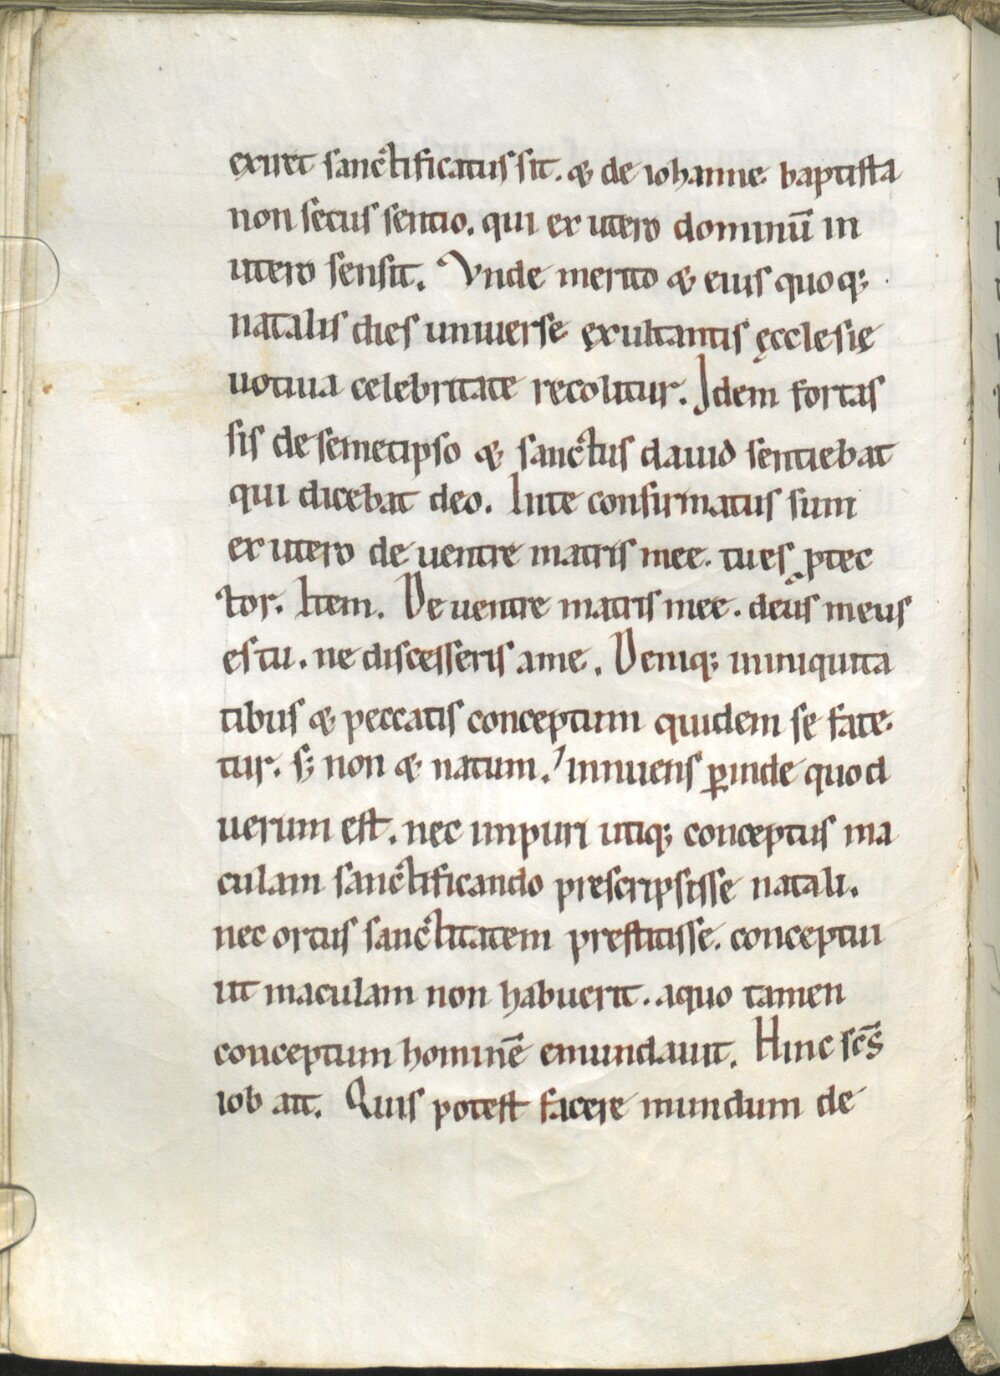 exiret sanctificatus sit. & de iohanne baptista
non secus sentio. qui ex utero dominū in
utero sensit. Vnde merito & eius quoq;
natalis dies uniuerse ęxultantis ęcclesię
uotiua celebritate recolitur. Idem fortas
sis de semetipso & sanctus dauid sentiebat
qui dicebat deo. Inte confirmatus sum
ex utero de uentre matris mee. tu es ꝓtec
tor. Item. De uentre matris mee. deus meus
es tu. ne discesseris ame. Deniq; ininiquita
tibus & peccatis conceptum quidem se fate
tur. s; non & natum. innuens ꝑinde quod
uerum est. nec impuri utiq; conceptus ma
culam sanctificando prescripsisse natali.
nec ortus sanctitatem prestitisse. conceptui
ut maculam non habuerit. aquo tamen
conceptum hominē emundauit. Hinc sc̄s
iob ait. Quis potest facere mundum de